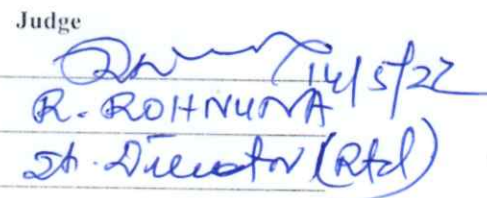 Judge
14/5/22
R. ROHNUNA
Director (Rtd)